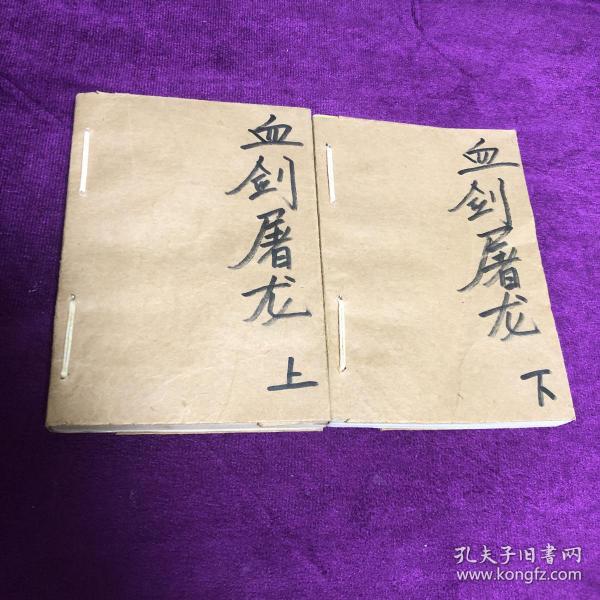 血剑屠龙
上
血剑屠龙
下
孔夫子旧书网
www.kongfz.com